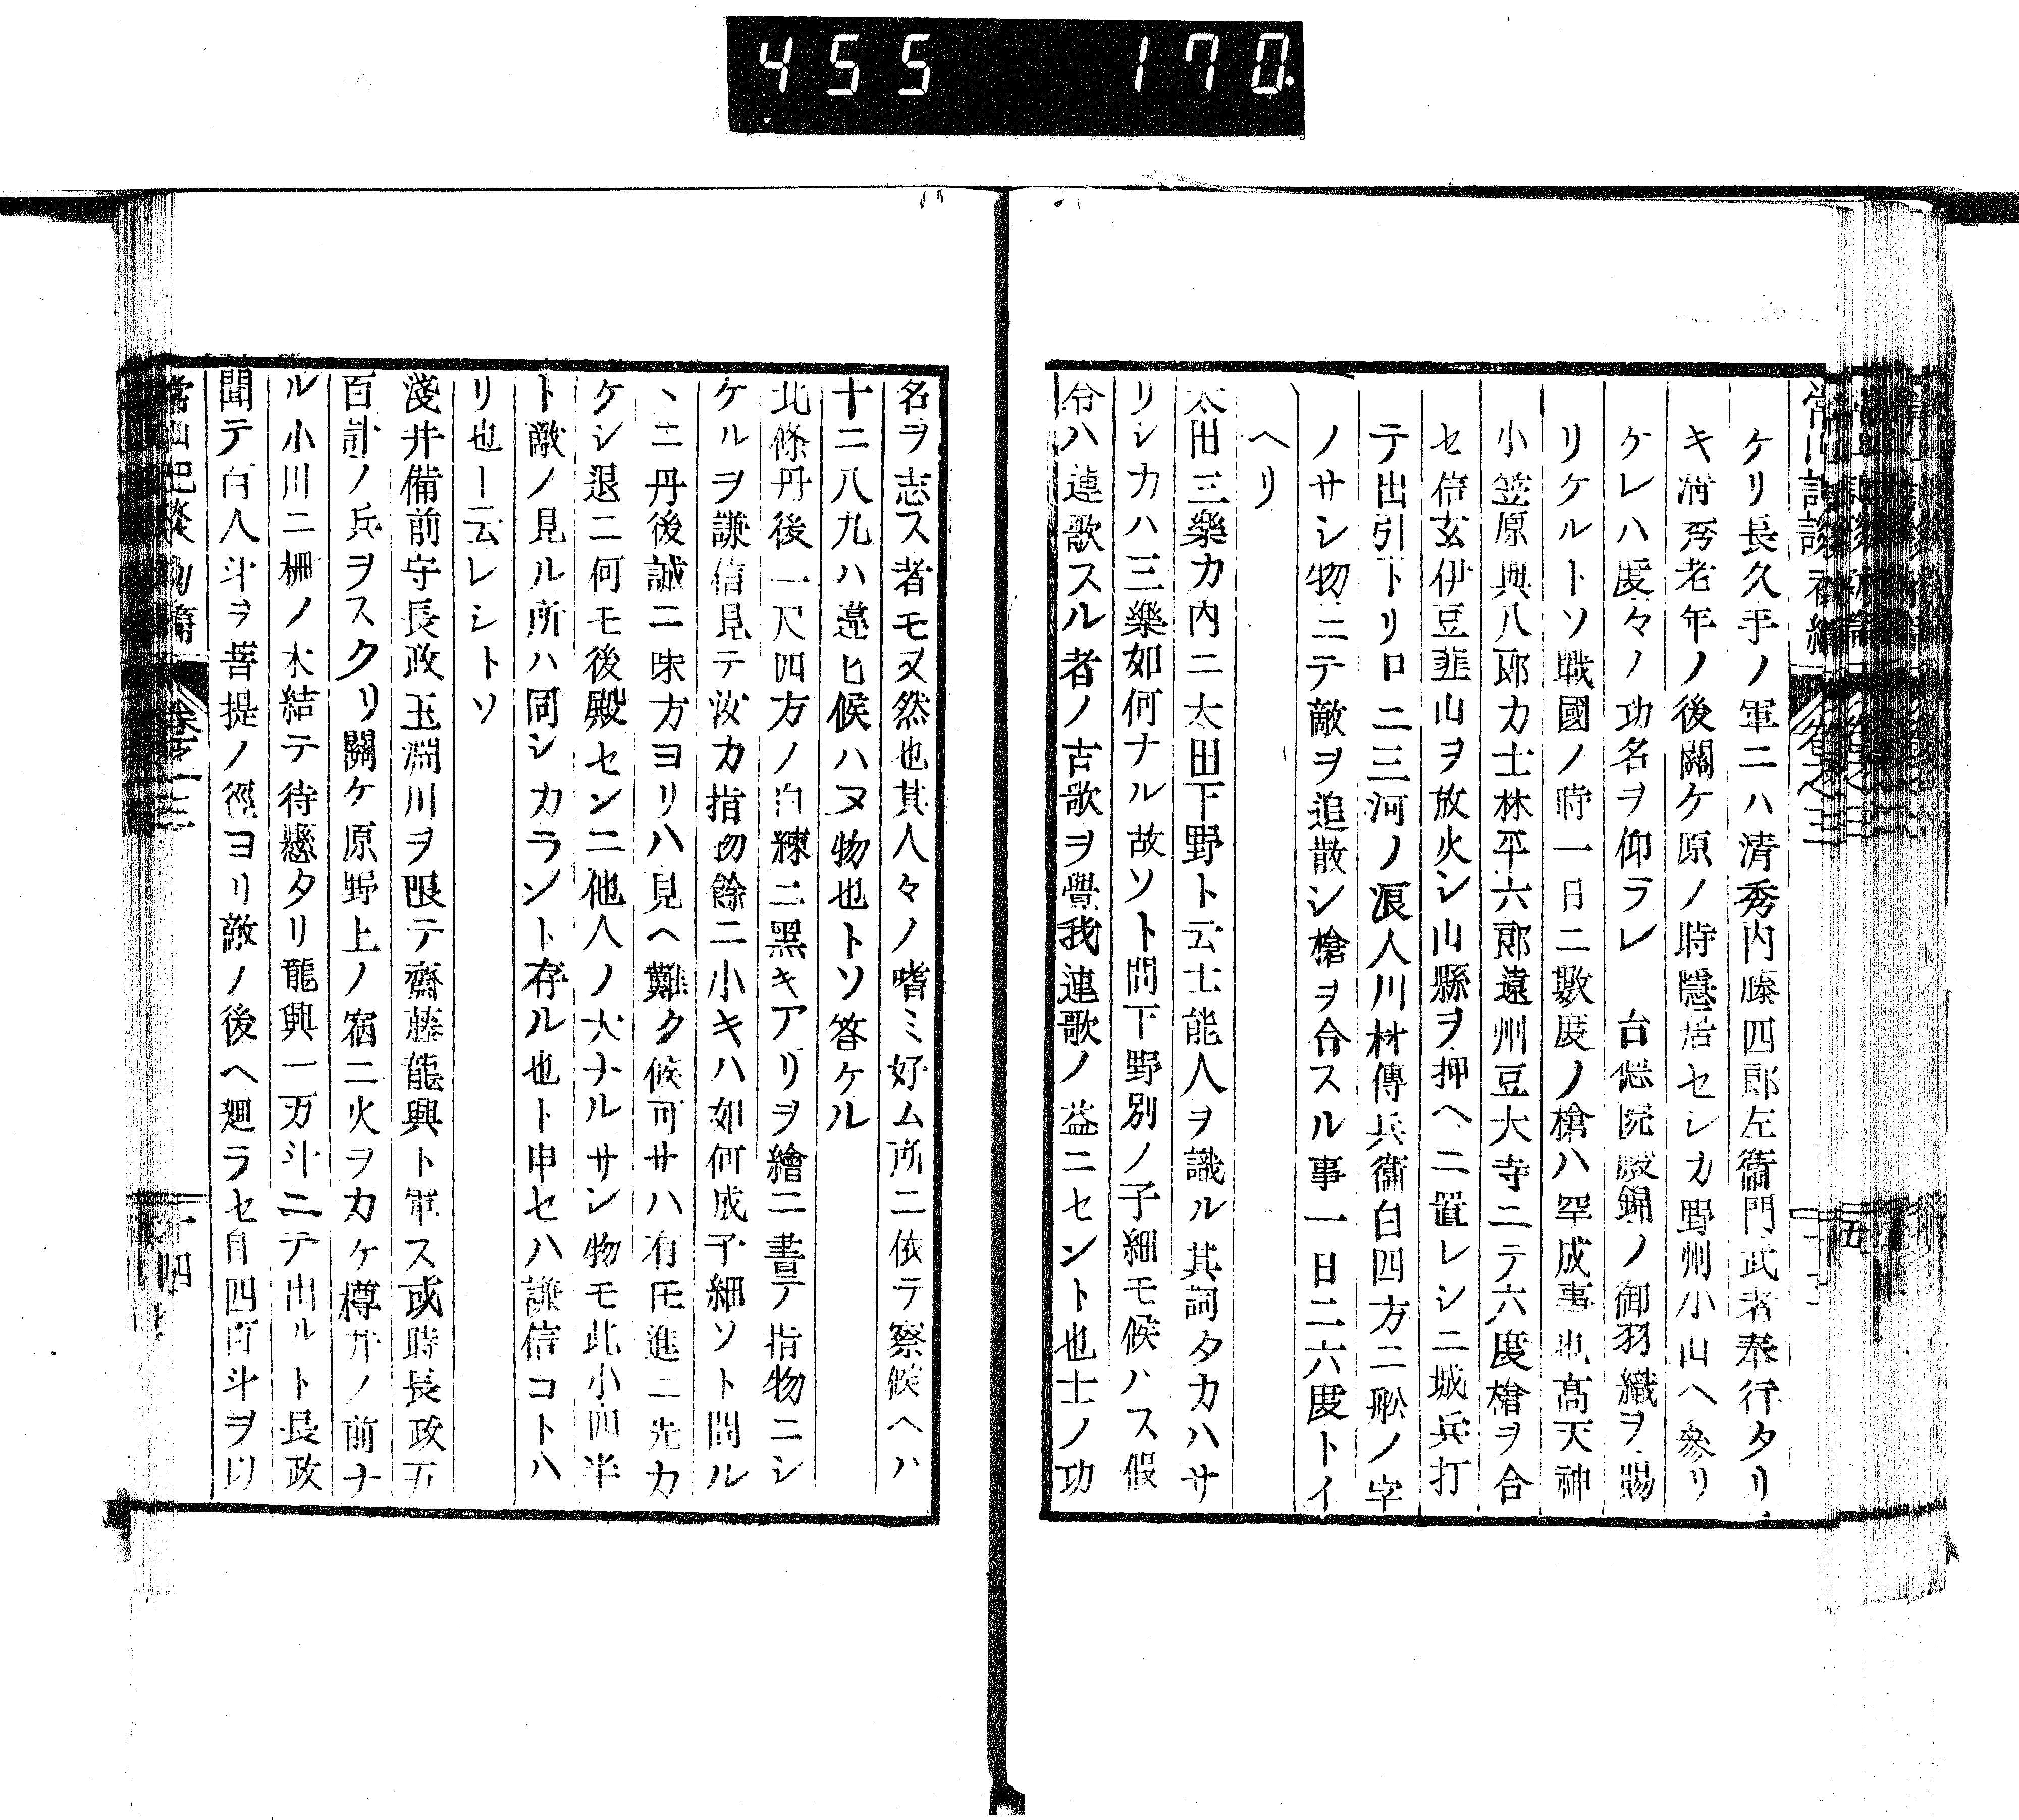 455 170
ケリ長久手ノ軍ニハ清秀内藤四郎左衞門武者奉行タリ、
キ清秀老年ノ後關ケ原ノ時隱居セシカ野州小山ヘ參リ
ケレハ度々ノ功名ヲ仰ラレ 台德院殿錦ノ御羽織ヲ賜
リケルトソ戰國ノ時一日ニ數度ノ槍ハ罕成事也高天神
小笠原與八郎カ士林平六郎遠州豆大寺ニテ六度槍ヲ合
セ信玄伊豆韮山ヲ放火シ山縣ヲ押ヘニ置レシニ城兵打
テ出引トリ口ニ三河ノ浪人川村傳兵衞白四方ニ舩ノ字
ノサシ物ニテ敵ヲ追散シ槍ヲ合スル事一日ニ六度トイ
ヘリ
太田三樂カ内ニ太田下野ト云士能人ヲ識ル其詞タカハサ
リシカハ三樂如何ナル故ソト問下野別ノ子細モ候ハス假
令ハ連歌スル者ノ古歌ヲ覺我連歌ノ益ニセント也士ノ功
名ヲ志ス者モ又然也其人々ノ嗜ミ好ム所ニ依テ察候ヘハ
十ニ八九ハ違ヒ候ハヌ物也トソ答ケル
北條丹後一尺四方ノ白練ニ黑キアリヲ繪ニ畫テ指物ニシ
ケルヲ謙信見テ汝カ指物餘ニ小キハ如何成子細ソト問ル
丶ニ丹後誠ニ味方ヨリハ見ヘ難ク候可サハ有𪜈進ニ先カ
ケシ退ニ何モ後殿センニ他人ノ大ナルサシ物モ此小四半
ト敵ノ見ル所ハ同シカラント存ル也ト申セハ謙信コトハ
リ也ト云レシトソ
淺井備前守長政玉淵川ヲ限テ齋藤龍興ト軍ス或時長政五
百計ノ兵ヲスクリ關ケ原野上ノ宿ニ火ヲカケ樽井ノ前ナ
ル小川ニ柵ノ木結テ待懸タリ龍興一万斗ニテ出ルト長政
聞テ百人斗ヲ菩提ノ徑ヨリ敵ノ後ヘ廻ラセ自四百斗ヲ以
常山紀談 卷之三 十四